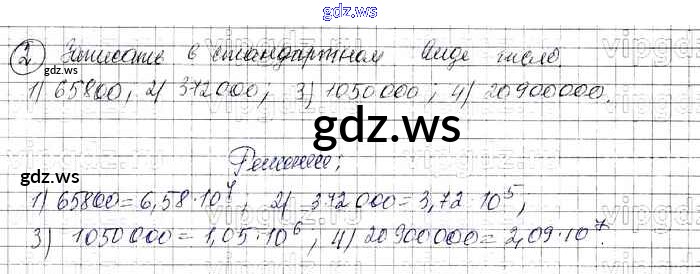 gdz.ws
② Записать в стандартном виде число
gdz.ws
1) 65800, 2) 372000, 3) 1050000; 4) 20900000.
gdz.ws
Решение:
gdz.ws
1) 65800 = 6,58·10⁴, 2) 372000 = 3,72 10⁵,
3) 1050000 = 1,05·10⁶, 4) 20900000 = 2,09·10⁷.
gdz.ws